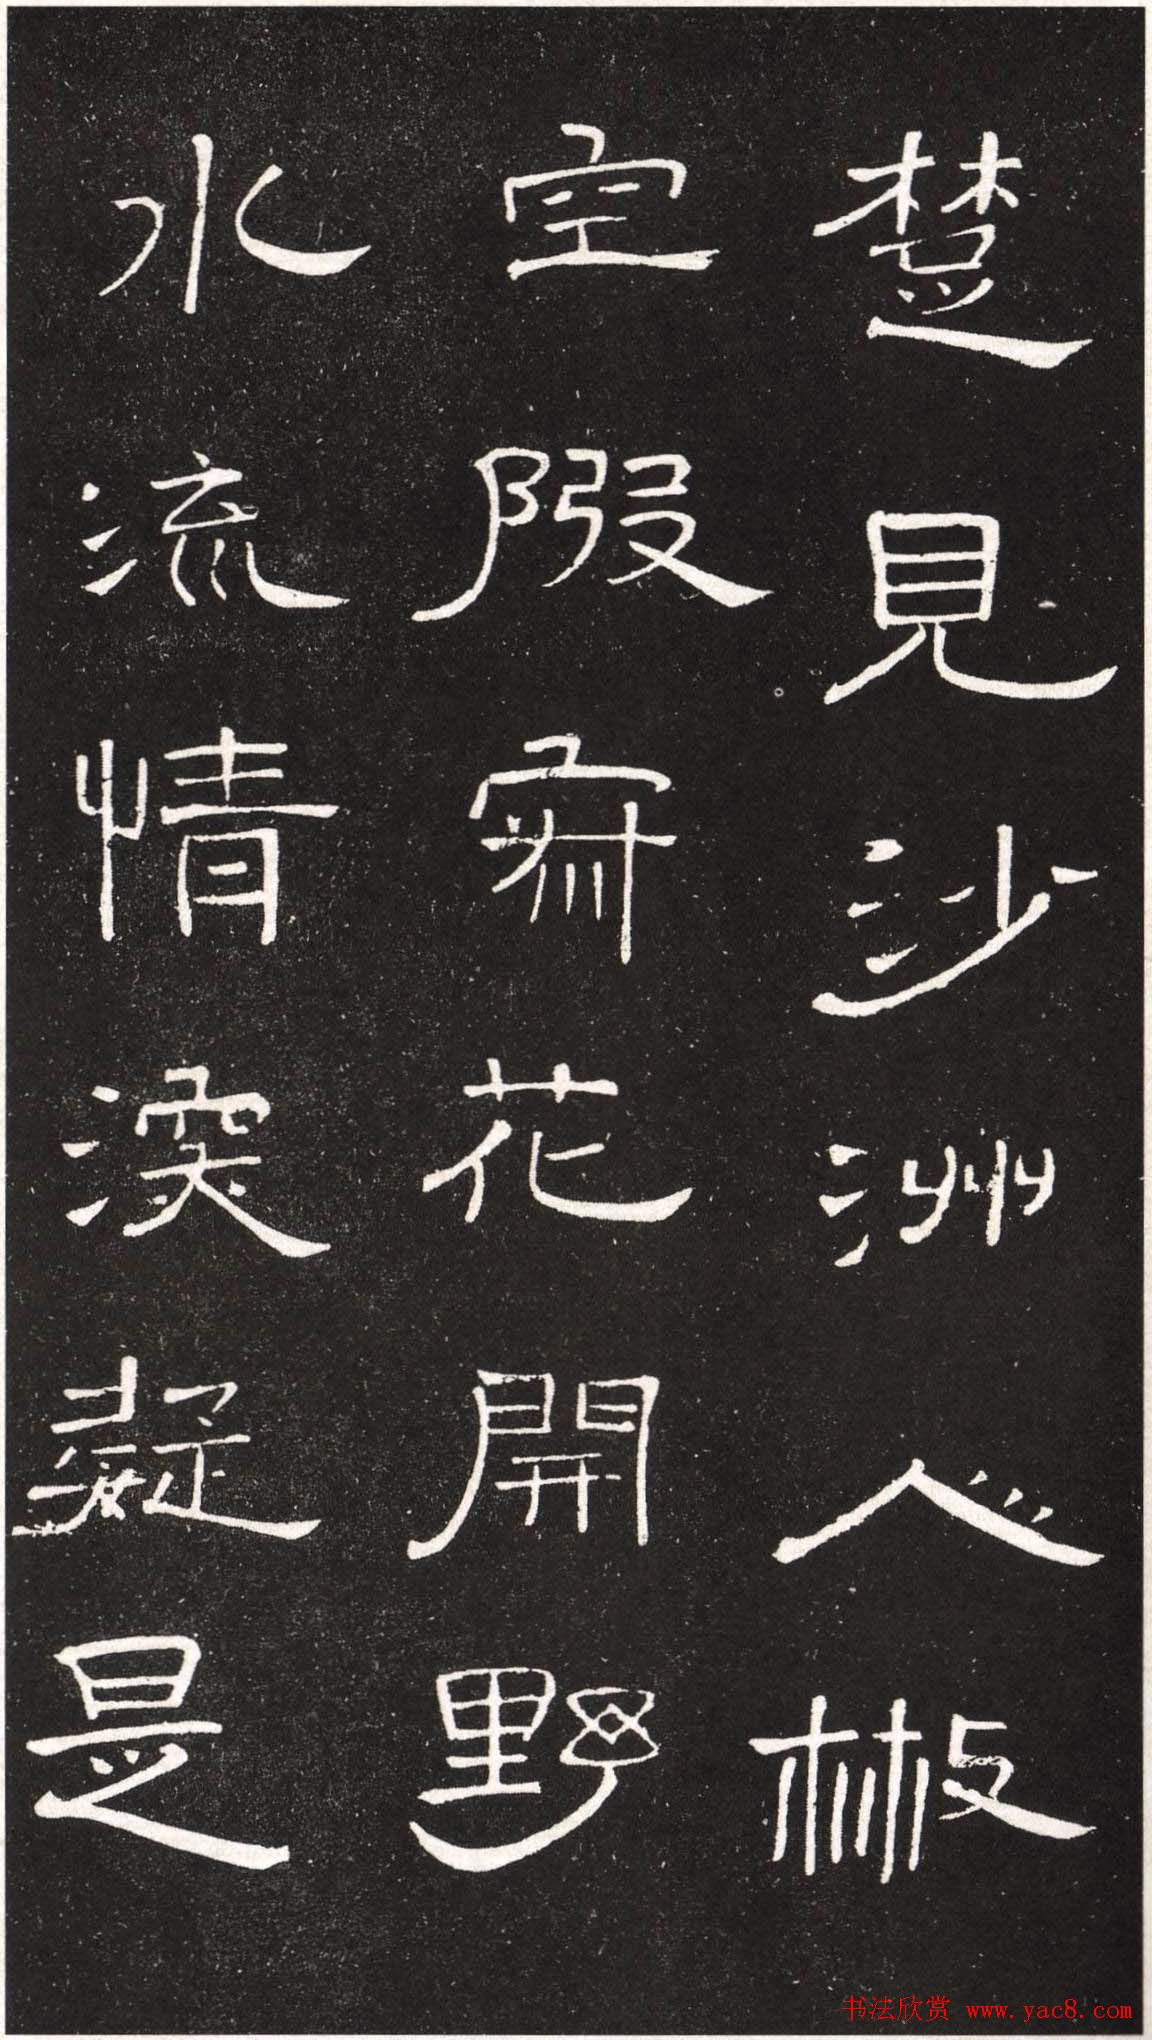 楚見沙洲人散
空花開野
水流情深疑是
书法欣赏 www.yac8.com